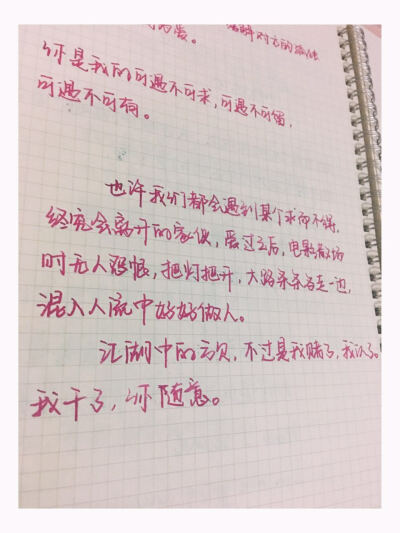 你是我的可遇不可求,可遇不可留,
可遇不可有。
也许我们都会遇到某个求而不得,
终究会离开的家伙,爱过之后,电影散场
时无人怨恨,把灯把开,大路条条各走一边,
混入人流中好好做人。
江湖中的亏欠,不过是我赌了,我认了。
我干了,你随意。